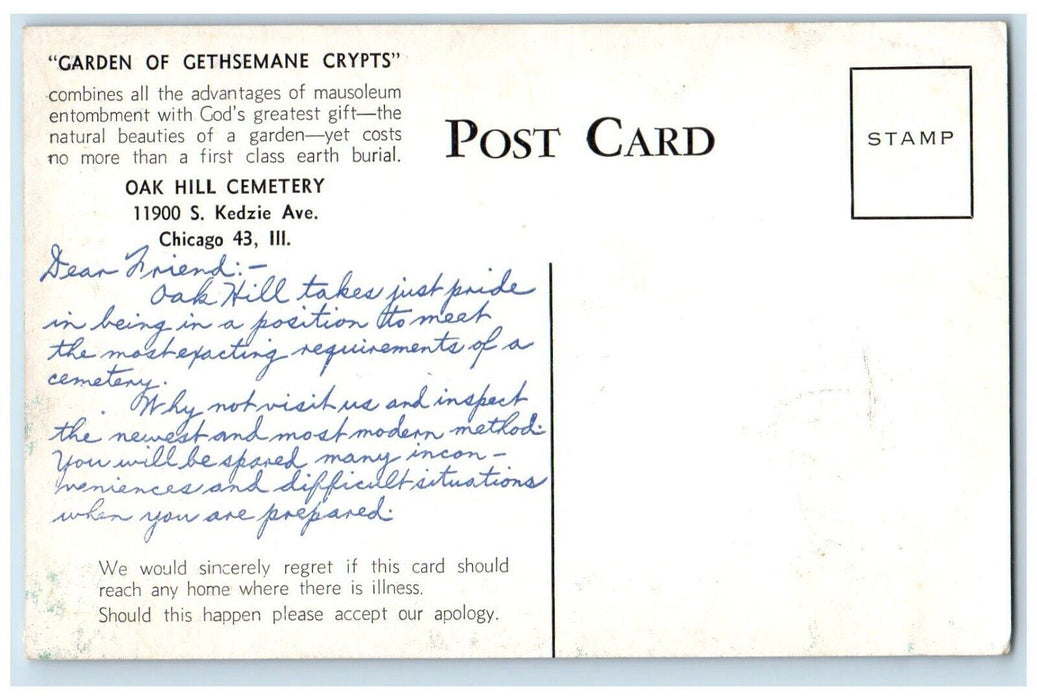 "GARDEN OF GETHSEMANE CRYPTS"
combines all the advantages of mausoleum
entombment with God's greatest gift—the
natural beauties of a garden—yet costs
no more than a first class earth burial.
OAK HILL CEMETERY
11900 S. Kedzie Ave.
Chicago 43, Ill.
POST CARD
STAMP
Dear Friend:-
Oak Hill takes just pride
in being in a position to meet
the most exacting requirements of a
cemetery.
Why not visit us and inspect
the newest and most modern method.
You will be spared many incon-
veniences and difficult situations
when you are prepared.
We would sincerely regret if this card should
reach any home where there is illness.
Should this happen please accept our apology.